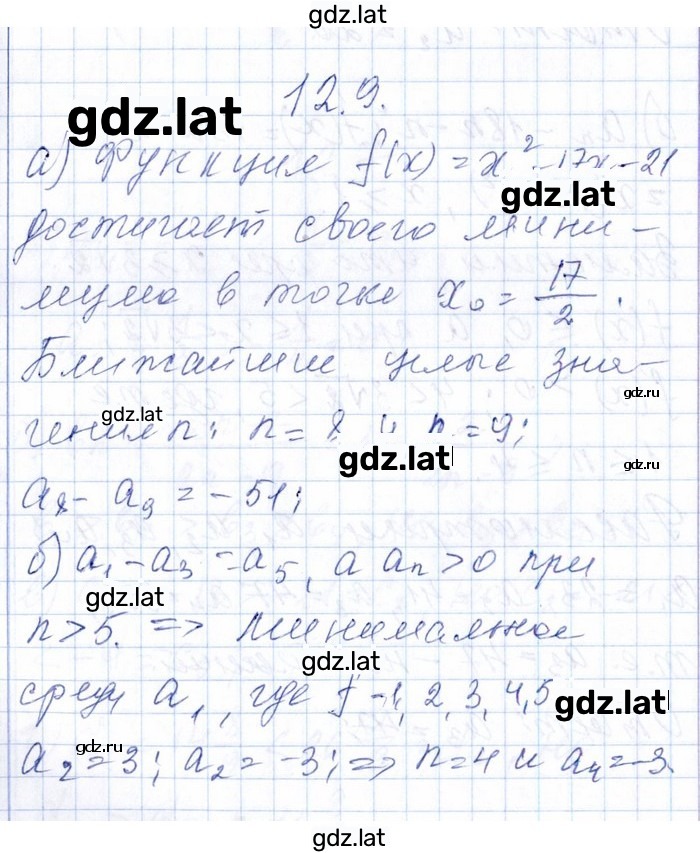 gdz.lat
12.9.
gdz.lat
а) Функция f(x) = x² - 17x - 21
gdz.lat
достигает своего мини-
мума в точке x₀ = 17/2.
Ближайшие целые зна-
gdz.ru
gdz.lat
чения n: n = 8 и n = 9;
gdz.lat
gdz.ru
a₈ - a₉ = - 51;
б) a₁ - a₃ = a₅, а aₙ > 0 при
gdz.lat
n > 5. => Минимальное
gdz.lat
среди a₁, где f - 1, 2, 3, 4, 5
gdz.lat
gdz.ru
a₂ = 3; a₂ = -3; => n = 4 и a₄ = -3.
gdz.lat